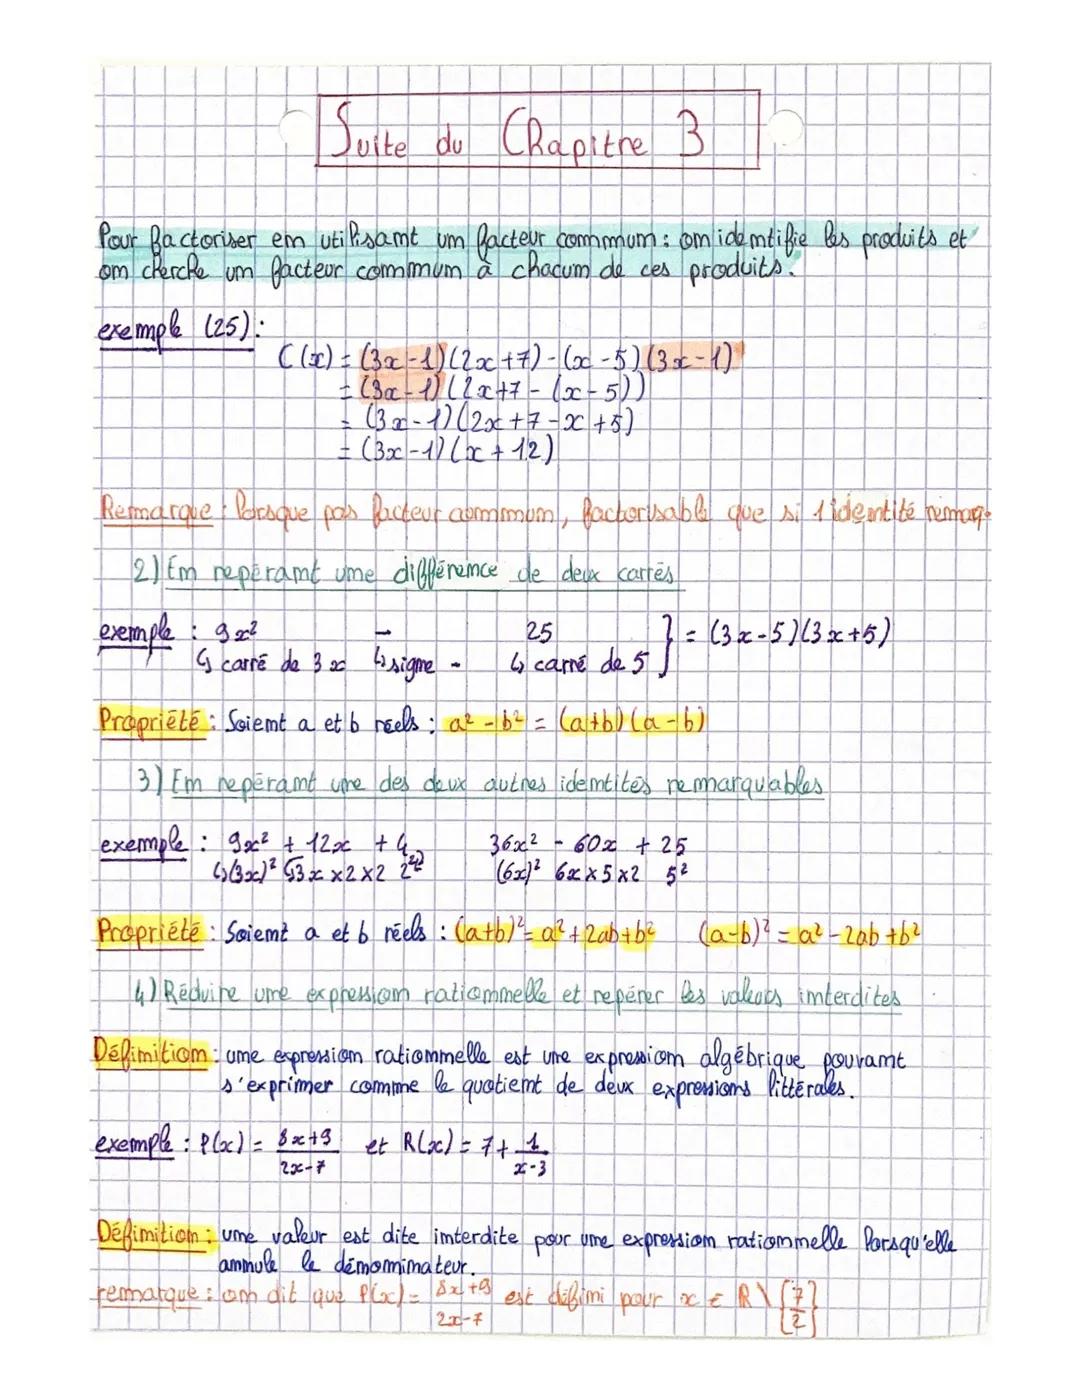 Suite du Chapitre 3
Pour factoriser en utilisant un facteur commun : on identifie les produits et
on cherche un facteur commun à chacun de ces produits.
exemple (25) :
C(x) = (3x-1)(2x+7) - (x-5)(3x-1)
= (3x-1)(2x+7 - (x-5))
= (3x-1)(2x+7-x+5)
= (3x-1)(x+12)
Remarque : lorsque pas facteur commun, factorisable que si 1 identité remarq.
2) En repérant une différence de deux carrés
exemple : 9x² - 25 } = (3x-5)(3x+5)
↳ carré de 3x ↳ signe - ↳ carré de 5
Propriété : Soient a et b réels : a² - b² = (a+b)(a-b)
3) En repérant une des deux autres identités remarquables
exemple : 9x² + 12x + 4 36x² - 60x + 25
↳(3x)² ↳3x×2×2 2² (6x)² 6x×5×2 5²
Propriété : Soient a et b réels : (a+b)² = a²+2ab+b² (a-b)² = a²-2ab+b²
4) Réduire une expression rationnelle et repérer les valeurs interdites
Définition : une expression rationnelle est une expression algébrique pouvant
s'exprimer comme le quotient de deux expressions littérales.
exemple : P(x) = 8x+9/2x-7 et R(x) = 7 + 1/x-3
Définition : une valeur est dite interdite pour une expression rationnelle lorsqu'elle
annule le dénominateur.
remarque : on dit que P(x) = 8x+9/2x-7 est défini pour x ∈ R \ {7/2}